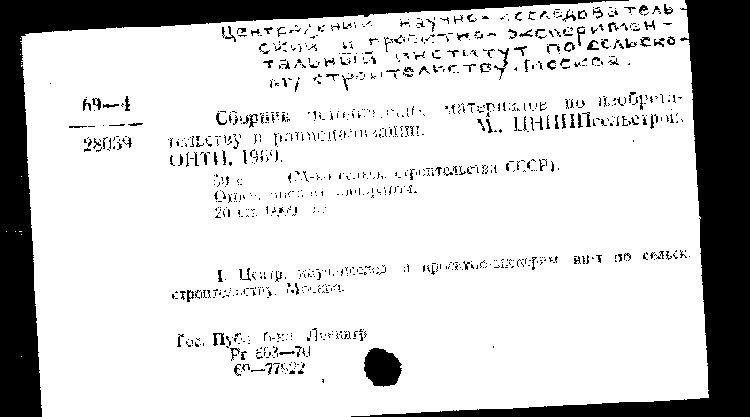 Центральный научно-исследователь-
ский и проектно-эксперимен-
тальный институт по сельско-
му строительству. Москва.
69—4
28059
Сборник материалов по изобрета-
тельству и рационализации. М., ЦНИИЭПсельстрой,
ОНТИ, 1969.
(М-во сельск. строительства СССР).
20 см.
1. Центр. науч.-исслед. и проектно-эксперим. ин-т по сельск.
строительству. Москва.
Гос. Публ. б-ка Ленингр
69—77922